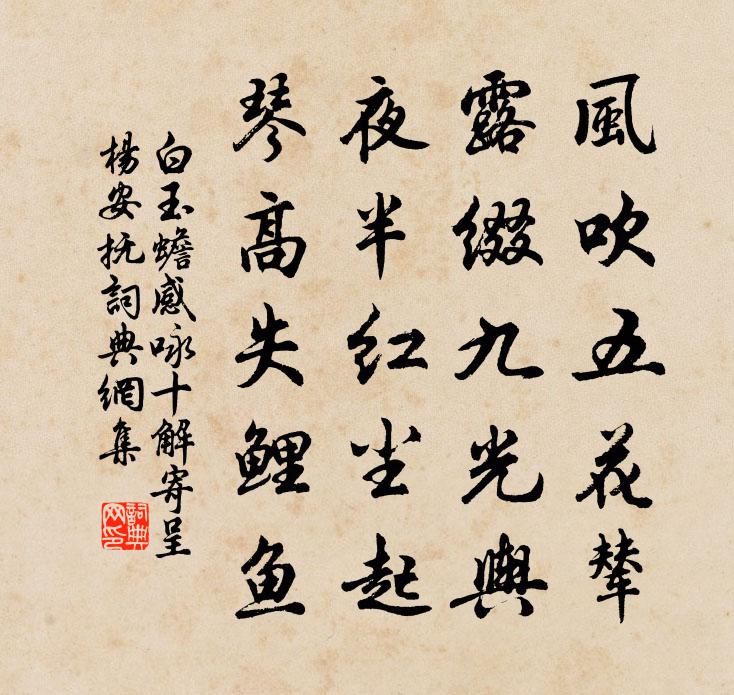 風吹五花輦
露綴九光輿
夜半红尘起
琴高失鲤鱼
白玉蟾感咏十解寄呈
楊安抚詞典網集
詞典
网印